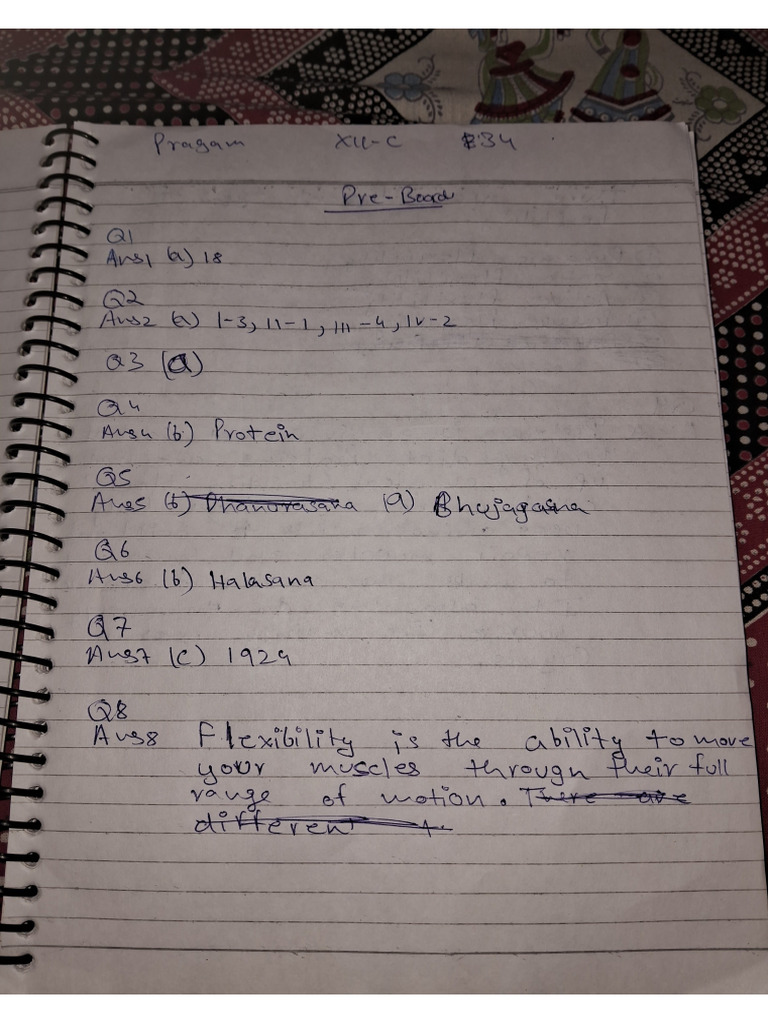 Pragam XII-C 34
Pre-Board
Q1
Ans1 (a) 18
Q2
Ans2 (a) I-3, II-1, III-4, IV-2
Q3 (a)
Q4
Ans4 (b) Protein
Q5
Ans5 (b) Dhanurasana (a) Bhujagasna
Q6
Ans6 (b) Halasana
Q7
Ans7 (c) 1924
Q8
Ans8 Flexibility is the ability to move
your muscles through their full
range of motion. There are
different